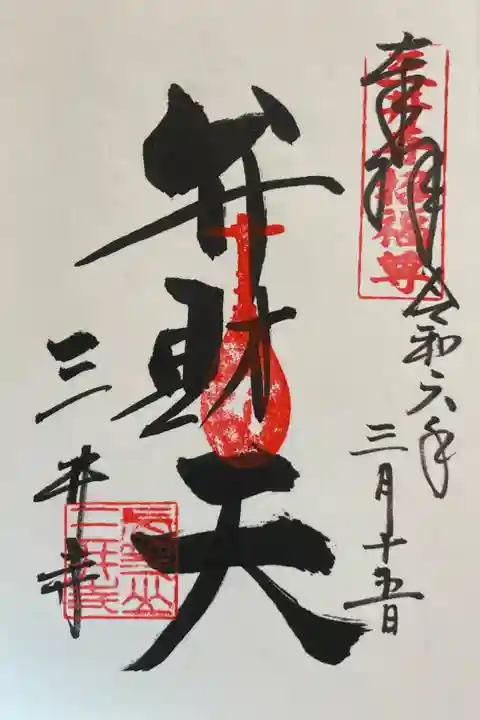 奉拝
令和六年
三月十五日
弁財天
三井寺